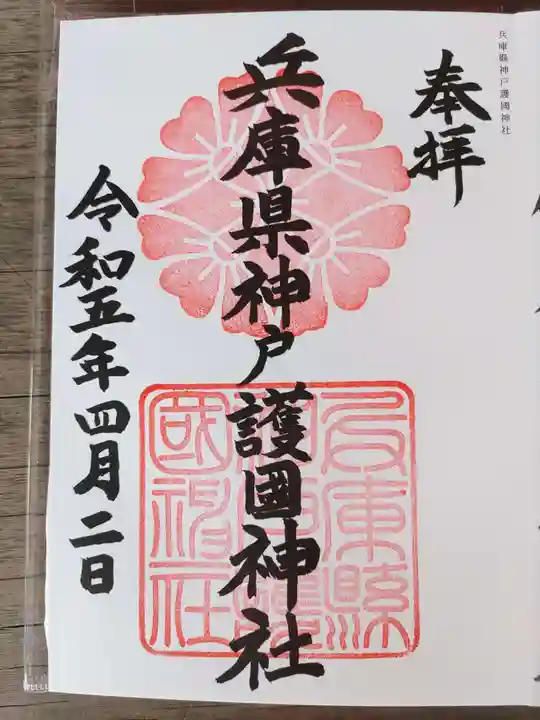 兵庫縣神戸護國神社
奉拝
兵庫県神戸護國神社
令和五年四月二日
兵庫縣
神戸護
國神社